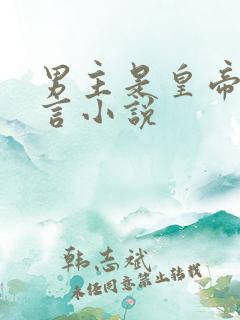 男主是皇帝
言小说
韩志斌
未经同意禁止转载